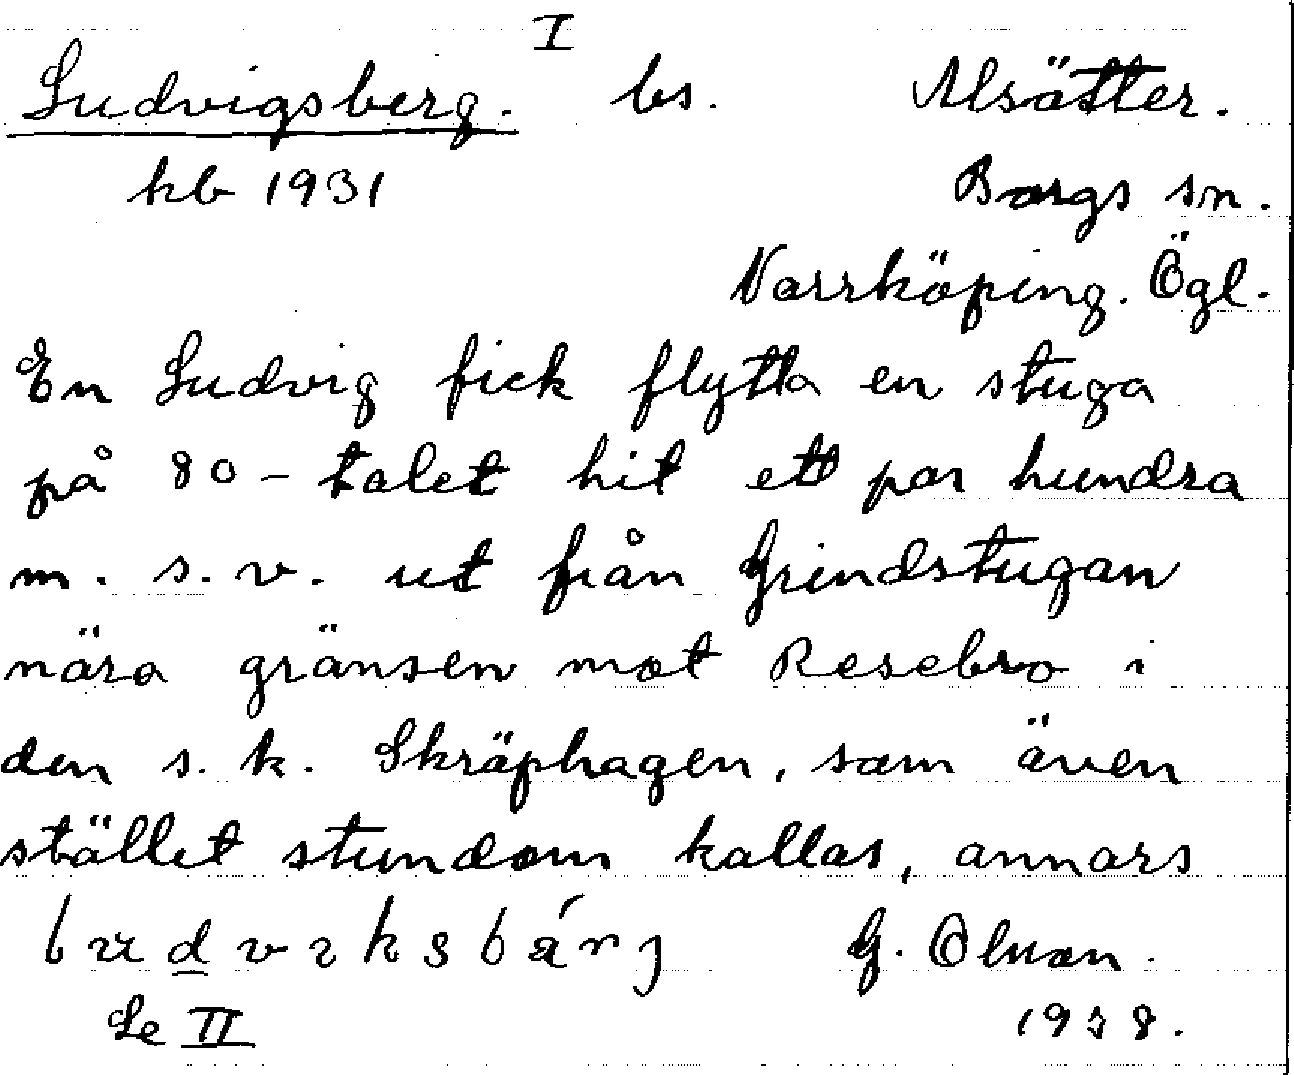 I
Ludvigsberg. bs. Alsätter.
kb 1931 Borgs sn.
Norrköping. Ögl.
En Ludvig fick flytta en stuga
på 80-talet hit ett par hundra
m. s.v. ut från Grindstugan
nära gränsen mot Resebro i
den s.k. Skräphagen, som även
stället stundom kallas, annars
G. Olsson.
Se II 1938.